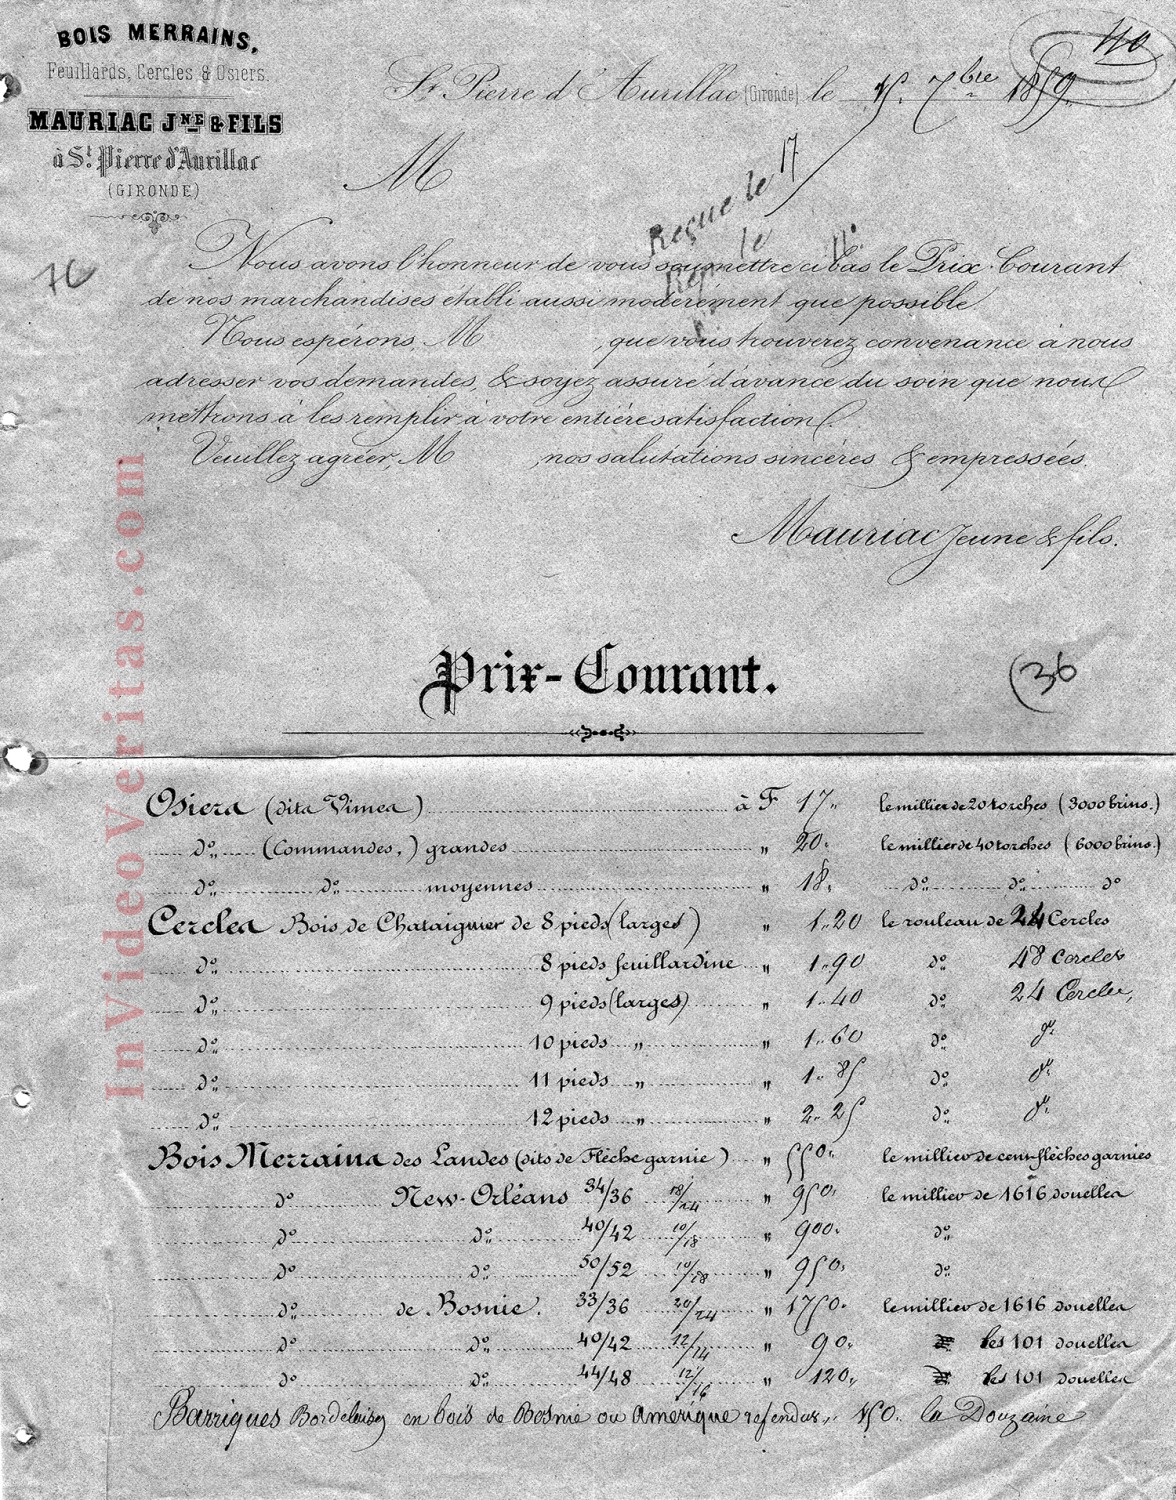 BOIS MERRAINS,
Feuillards, Cercles & Osiers.
MAURIAC JNE & FILS
à St. Pierre d'Aurillac
(GIRONDE)
40
St. Pierre d'Aurillac (Gironde) le 15 7bre 1859.
M
Reçue le 17
le
76
Nous avons l'honneur de vous soumettre ci bas le Prix-Courant
de nos marchandises établi aussi modérément que possible.
Nous espérons, M , que vous trouverez convenance à nous
adresser vos demandes, & soyez assuré d'avance du soin que nous
mettrons à les remplir à votre entière satisfaction.
Veuillez agréer, M , nos salutations sincères & empressées.
Mauriac Jeune & fils.
Prix-Courant.
(36
Osiers (dits Vimes) à F 17 " le millier de 20 torches (3000 brins.)
do (Commandes,) grandes " 20 " le millier de 40 torches (6000 brins.)
do do moyennes " 18 " do do do
Cercles Bois de Chataignier de 8 pieds (larges) " 1 " 20 le rouleau de 24 Cercles
do 8 pieds feuillardine " 1 " 90 do 48 Cercles
do 9 pieds (larges) " 1 " 40 do 24 Cercles,
do 10 pieds " " 1 " 60 do do
do 11 pieds " " 1 " 85 do do
do 12 pieds " " 2 " 25 do do
Bois Merrains des Landes (dits de Flèche garnie) " 550 " le millier de cent flèches garnies
do New-Orléans 34/36 18/24 " 950 " le millier de 1616 douelles
do do 40/42 10/18 " 900 " do
do do 50/52 10/18 " 950 " do
do de Bosnie. 33/36 20/24 " 1750 " le millier de 1616 douelles
do do 40/42 12/14 " 90 " les 101 douelles
do do 44/48 12/16 " 120 " les 101 douelles
Barriques Bordelaises en bois de Bosnie ou Amérique refendus " 150 " la Douzaine
InVideoVeritas.com